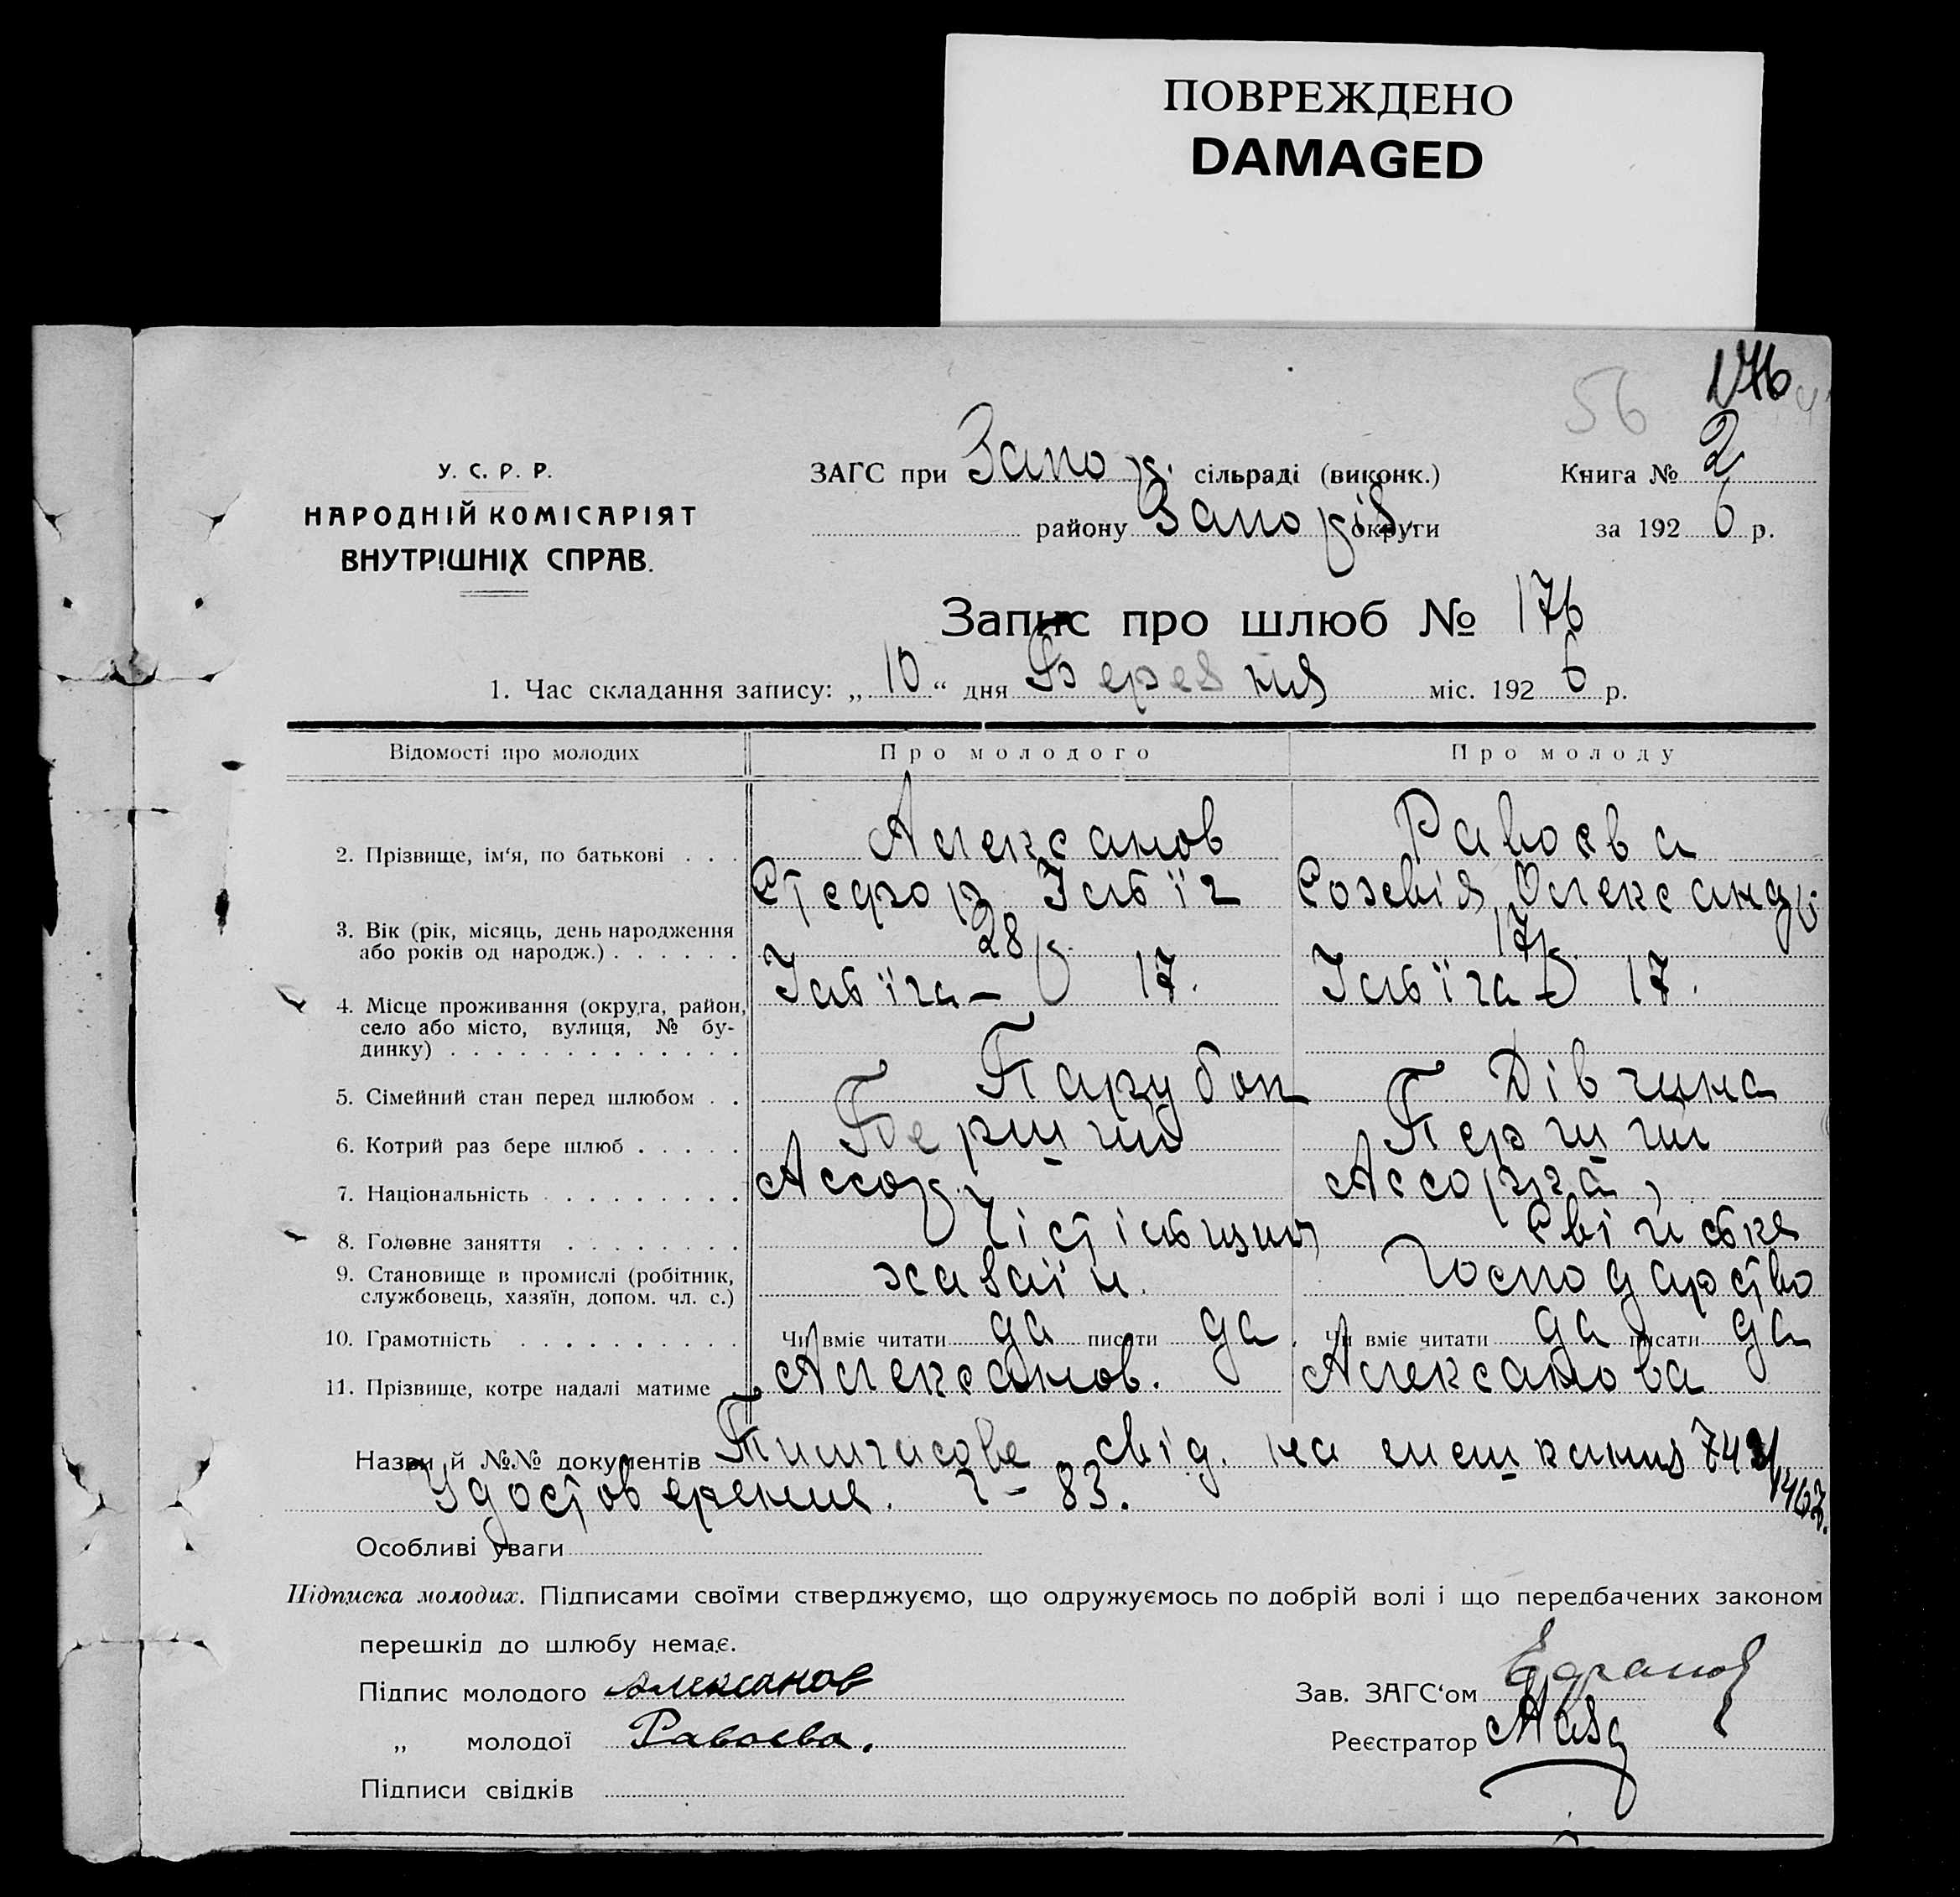 ПОВРЕЖДЕНО
DAMAGED
56 176
У. С. Р. Р.
НАРОДНІЙ КОМІСАРІЯТ
ВНУТРІШНІХ СПРАВ.
ЗАГС при Запор. сільраді (виконк.) Книга № 2
району Запоріз. округи за 1926 р.
Запис про шлюб № 176
1. Час складання запису: „10“ дня Березня міс. 1926 р.
Відомості про молодих Про молодого Про молоду
2. Прізвище, ім‘я, по батькові Алексанов Равоєва
Ільїч Олександр.
3. Вік (рік, місяць, день народження або років од народж.) 28 р. 17 р.
4. Місце проживання (округа, район, село або місто, вулиця, № будинку) Ільїча – 17. Ільїча – 17.
5. Сімейний стан перед шлюбом Парубок Дівчина
6. Котрий раз бере шлюб Перший Перший
7. Національність Ассор.
8. Головне заняття Чістільщик Свійське
9. Становище в промислі (робітник, службовець, хазяїн, допом. чл. с.) хазаїн. господарство
10. Грамотність Чи вміє читати да писати да Чи вміє читати да писати да
11. Прізвище, котре надалі матиме Алексанов. Алексанова
Назви й №№ документів Тимчасове свід. на мешкання
Удостоверение. 83.
Особливі уваги
Підписка молодих. Підписами своїми стверджуємо, що одружуємось по добрій волі і що передбачених законом
перешкід до шлюбу немає.
Підпис молодого Алексанов Зав. ЗАГС‘ом
„ молодої Равоева. Реєстратор
Підписи свідків